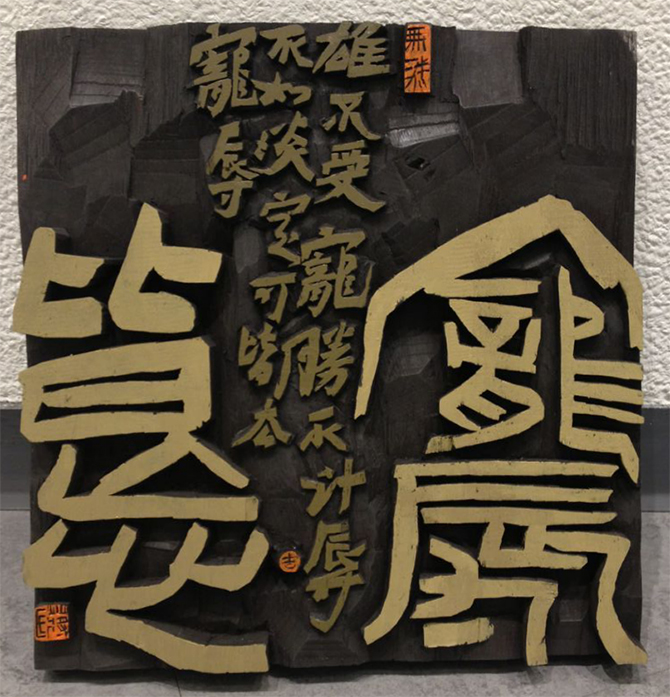 寵辱
皆忘
雄不受寵勝不計辱
不如淡定可皆
寵辱